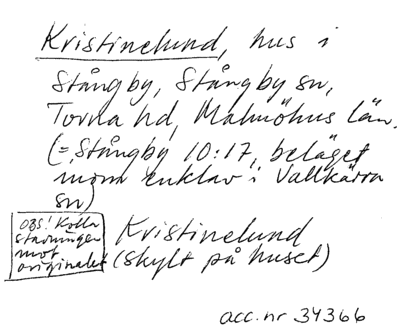 Kristinelund, hus i
Stångby, Stångby sn,
Torna hd, Malmöhus län.
(=, Stångby 10:17, beläget
inom enklav i Vallkärra
sn)
OBS! Kolla
stavningen
mot
originalet
Kristinelund
(skylt på huset)
acc.nr 34366